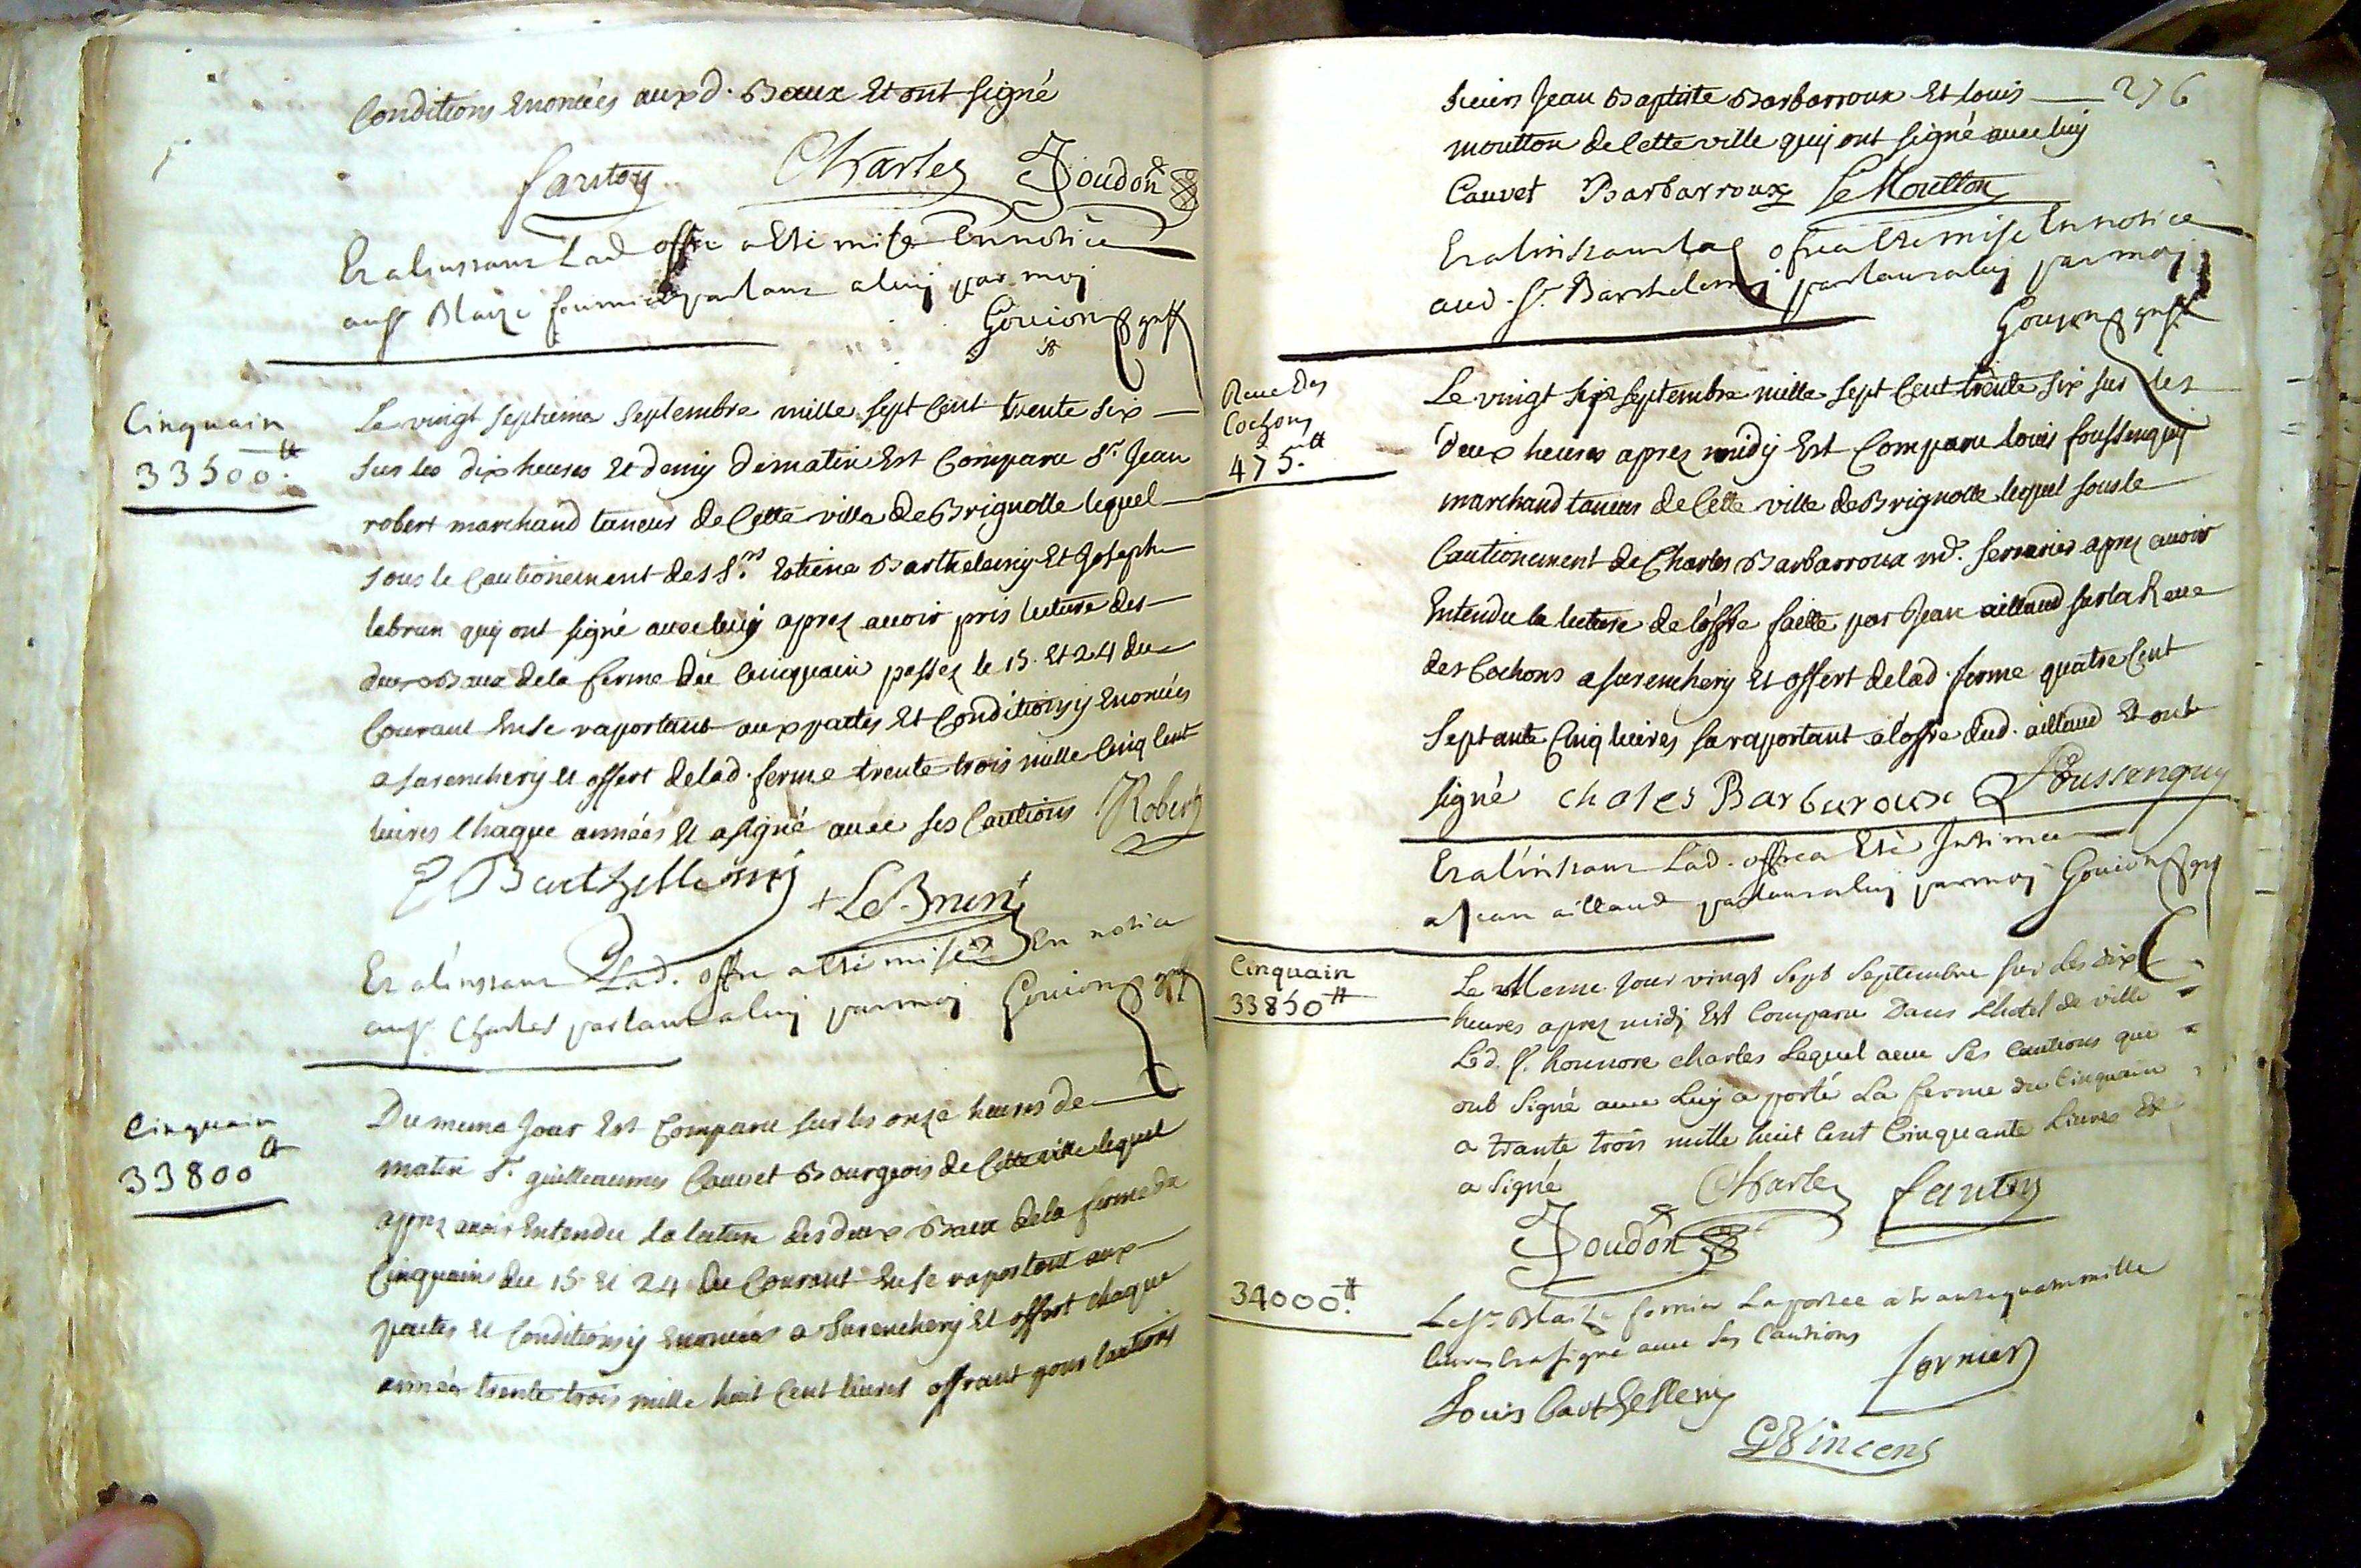 Conditions Enoncées auxd. Baux Et ont signé
fantoy Charles Joudon
Et a linstant Lad offre a Eté mise En notice
au sr Blaize fournier parlant a luy par moy
Gouion greff
Cinquain
33500.tt
Le vingt septieme Septembre mille sept Cent trente six
sur les dix heures Et demy de matin Est Comparu Sr. Jean
robert marchand taneur de Cette ville de Brignolle lequel
sous le Cautionement des Srs. Estiene Barthelemy Et Joseph
lebrun quy ont signé avec luy aprez avoir pris lecture des
deux Baux dela ferme du Cinquain passez le 15. Et 24 du
Courant En se raportant aux pactes Et Conditions y Enoncées
a surenchery Et offert delad. ferme trente trois mille Cinq Cent
livres Chaque années Et a signé avec ses Cautions Robert
E Barthellemy
+ LeBrun +
Et a linstant Lad. offre a Eté mise En notice
au sr. Charles parlant a luy par moy Gouion greff
Cinquain
33800 tt
Du meme Jour Est Comparu sur les onze heures de
matin Sr. guilleaumes Cauvet Bourgeois de Cette ville lequel
aprez avoir Entendu la lecture des deux Baux dela ferme du
Cinquain du 15 Et 24 du Courant En se raportant aux
pactes Et Conditions y Enoncées a Surenchery Et offert chaque
année trente trois mille huit Cent livres offrant pour Cautions
sieurs Jean Baptiste Barbarroux Et louis 276
moutton de Cette ville quy ont signé avec luy
Cauvet Barbarroux Le Moutton
Et a linstant lad ofre a Eté mise En notice
aud. sr. Barthelemy parlant a luy par moy
Gouion greff
Reue des
Cochons
475.tt
Le vingt six Septembre mille sept Cent trente six sur les
deux heures aprez midy Est Comparu louis foussenquy
marchand taneur de Cette ville de Brignolle lequel sous le
Cautionement de Charles Barbarroux md. serrurier aprez avoir
Entendu la lecture de loffre faitte par Jean aillaud sur la Reue
des Cochons a surenchery Et offert delad. ferme quatre Cent
Septante Cinq livres se raportant a loffre dud. aillaud Et ont
signé choles Barbaroux L Foussenquy
Et a linstant Lad. offre a Eté Intimée
a Jean aillaud parlant a luy par moy Gouion gref
Cinquain
33850 tt
Le Meme Jour vingt Sept Septembre sur les dix
heures aprez midi Est Comparu Dans Lhotel de ville
Led. sr. honnore charles Lequel avec Ses Cautions que
ont Signé avec Luy a porté La ferme du Cinquain
a trante trois mille huit Cent Cinquante Livres Et
a Signé Charles fantoy
Joudon
34000.tt
Le sr Blaize fornier La portée a trante quatre mille
livres Et a signé avec Ses Cautions
fornier
Louis barthellemy
G Vincens